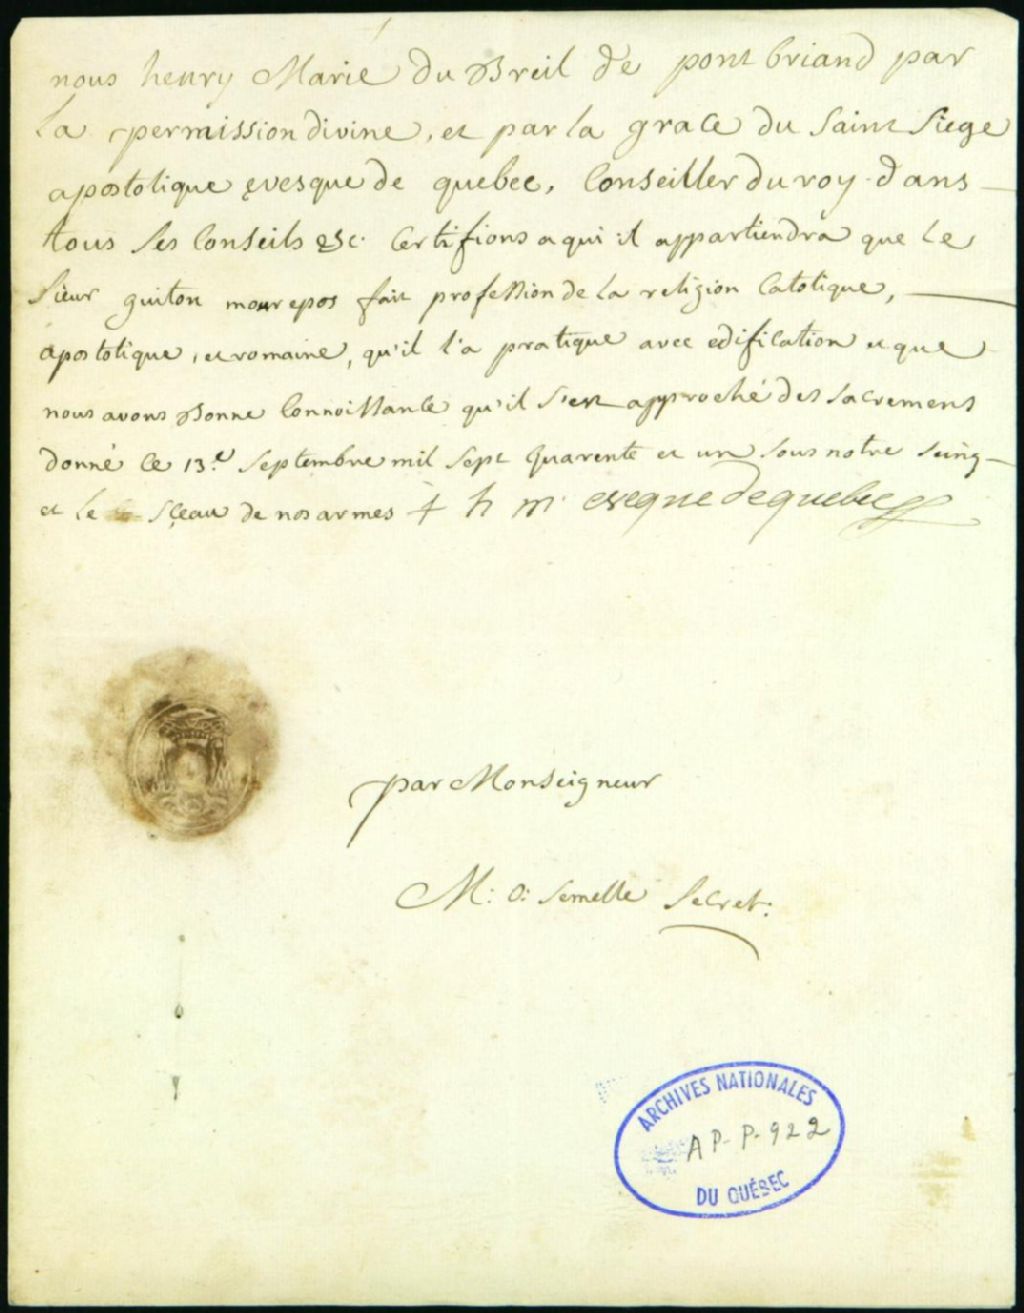 nous henry Marie du Breil de pont briand par
la permission divine, et par la grace du saint siege
apostolique evesque de quebec, Conseiller du roy dans
tous ses Conseils &c. Certifions a qui il appartiendra que le
sieur guiton mourepos fait profession de la religion Catolique,
apostolique, et romaine, qu'il l'a pratique avec edification et que
nous avons Bonne Connoissance qu'il s'est approché des sacremens
donné ce 13.e septembre mil sept quarente et un sous notre seing
et le sçeau de nos armes + h m. eveque de quebec
par Monseigneur
M: O: semelle secret:
ARCHIVES NATIONALES
AP-P-922
DU QUÉBEC